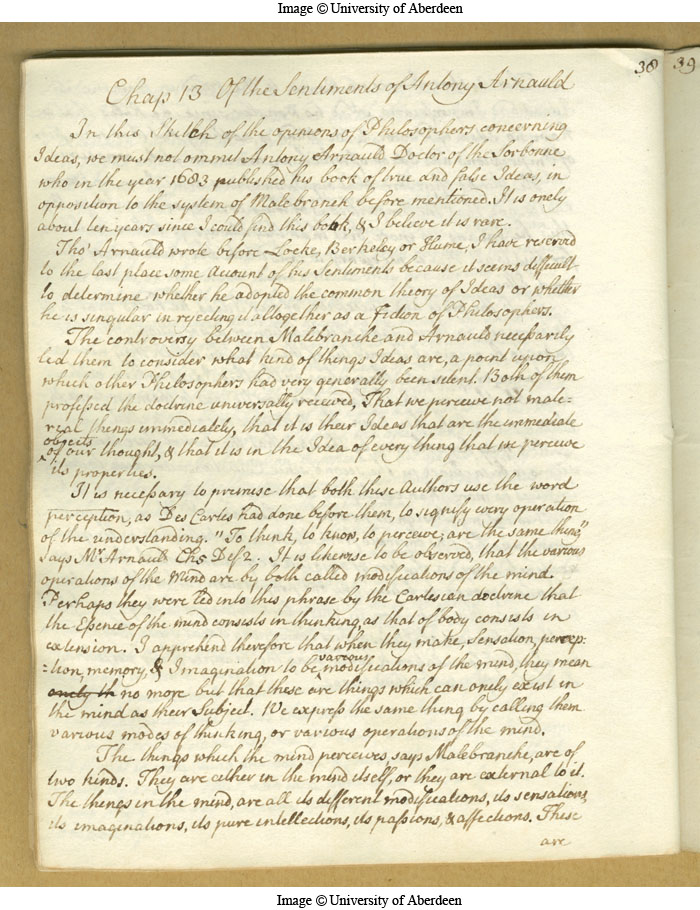 Image © University of Aberdeen
38
39
Chap 13 Of the Sentiments of Antony Arnauld
In this Skitch of the opinions of Philosophers concerning
Ideas, we must not ommit Antony Arnauld Doctor of the Sorbonne
who in the year 1683 published his book of true and false Ideas, in
opposition to the system of Malebranch before mentioned. It is onely
about ten years since I could find this book, & I believe it is rare.
Tho' Arnauld wrote before Locke, Berkeley or Hume, I have reserved
to the last place some account of his Sentiments because it seems difficult
to determine whether he adopted the common theory of Ideas or whether
he is singular in rejecting it altogether as a fiction of Philosophers.
The controversy between Malebranche and Arnauld necessarily
led them to consider what kind of things Ideas are, a point upon
which other Philosophers had very generally been silent. Both of them
professed the doctrine universally received, That we perceive not mate-
rial things immediately, that it is their Ideas that are the immediate
objects
of our thought, & that it is in the Idea of every thing that we perceive
its properties.
It is necessary to premise that both these Authors use the word
perception, as Des Cartes had done before them, to signify every operation
of the understanding. "To think, to know, to perceive, are the same thing"
says Mr Arnaud Ch 5 Def 2. It is likewise to be observed, that the various
operations of the Mind are by both called modifications of the mind.
Perhaps they were led into this phrase by the Cartesian doctrine that
the Essence of the mind consists in thinking, as that of body consists in
extension. I apprehend therefore that when they make, Sensation, percep-
-tion, memory, & Imagination to be various modifications of the mind, they mean
onely th no more but that these are things which can onely exist in
the mind as their Subject. We express the same thing by calling them
various modes of thinking, or various operations of the mind.
The things which the mind perceives, says Malebranche, are of
two kinds. They are either in the mind itself, or they are external to it.
The things in the mind, are all its different modifications, its sensations,
its imaginations, its pure intellections, its passions, & affections. These
are
Image © University of Aberdeen